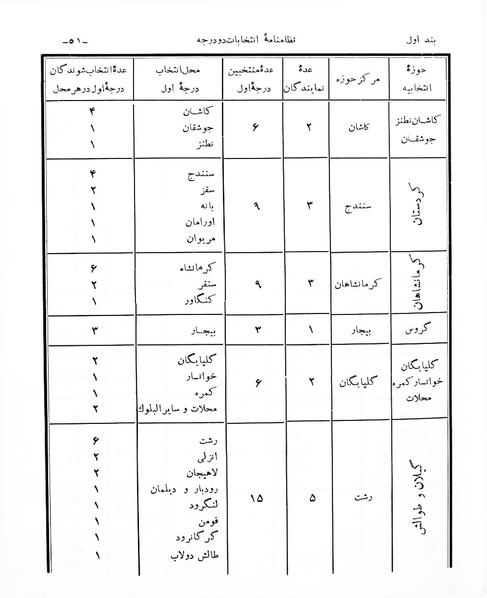 بند اول
نظامنامهٔ انتخابات دو درجه
ـ۵۱ـ
حوزهٔ انتخابیه
مرکز حوزه
عدهٔ نمایندگان
عدهٔ منتخبین درجهٔ اول
محل انتخاب درجهٔ اول
عدهٔ انتخاب شوندگان درجهٔ اول در هر محل
کاشان نطنز جوشقان
کاشان
۲
۶
کاشان ۴
جوشقان ۱
نطنز ۱
کردستان
سنندج
۳
۹
سنندج ۴
سقز ۲
بانه ۱
اورامان ۱
مریوان ۱
کرمانشاهان
کرمانشاهان
۳
۹
کرمانشاه ۶
سنقر ۲
کنگاور ۱
گروس
بیجار
۱
۳
بیجار ۳
گلپایگان
خوانسار کمره
محلات
گلپایگان
۲
۶
گلپایگان ۲
خوانسار ۱
کمره ۱
محلات و سایر البلوك ۲
گیلان و طوالش
رشت
۵
۱۵
رشت ۶
انزلی ۲
لاهیجان ۲
رودبار و دیلمان ۱
لنگرود ۱
فومن ۱
کرکانرود ۱
طالش دولاب ۱